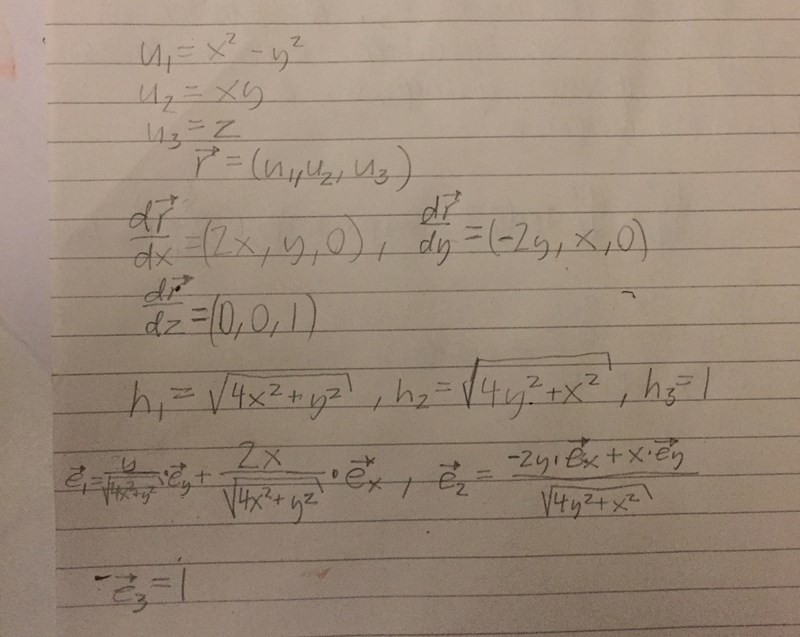 u₁ = x² - y²
u₂ = xy
u₃ = z
r⃗ = (u₁, u₂, u₃)
dr⃗/dx = (2x, y, 0), dr⃗/dy = (-2y, x, 0)
dr⃗/dz = (0, 0, 1)
h₁ = √(4x² + y²), h₂ = √(4y² + x²), h₃ = 1
e⃗₁ = y/√(4x² + y²) · e⃗y + 2x/√(4x² + y²) · e⃗x, e⃗₂ = (-2y · e⃗x + x · e⃗y)/√(4y² + x²)
e⃗₃ = 1